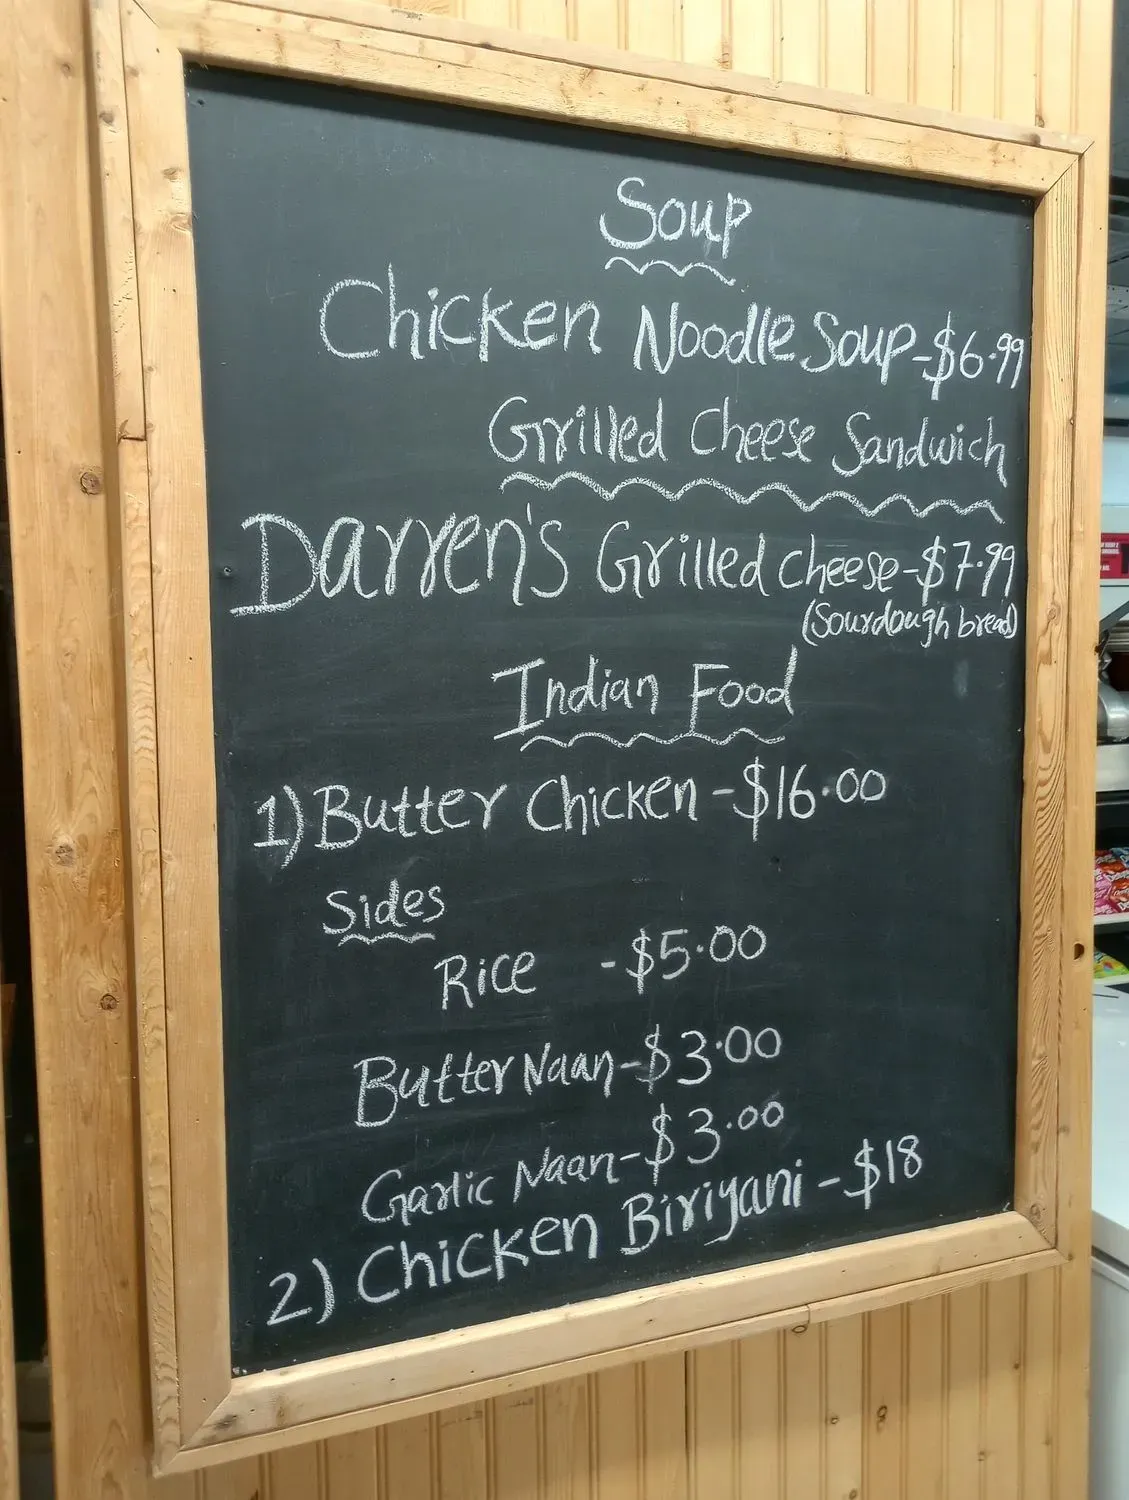 Soup
Chicken Noodle Soup-$6.99
Grilled Cheese Sandwich
Darren's Grilled cheese-$7.99
(Sourdough bread)
Indian Food
1) Butter Chicken-$16.00
Sides
Rice -$5.00
Butter Naan-$3.00
Garlic Naan-$3.00
2) Chicken Biriyani-$18